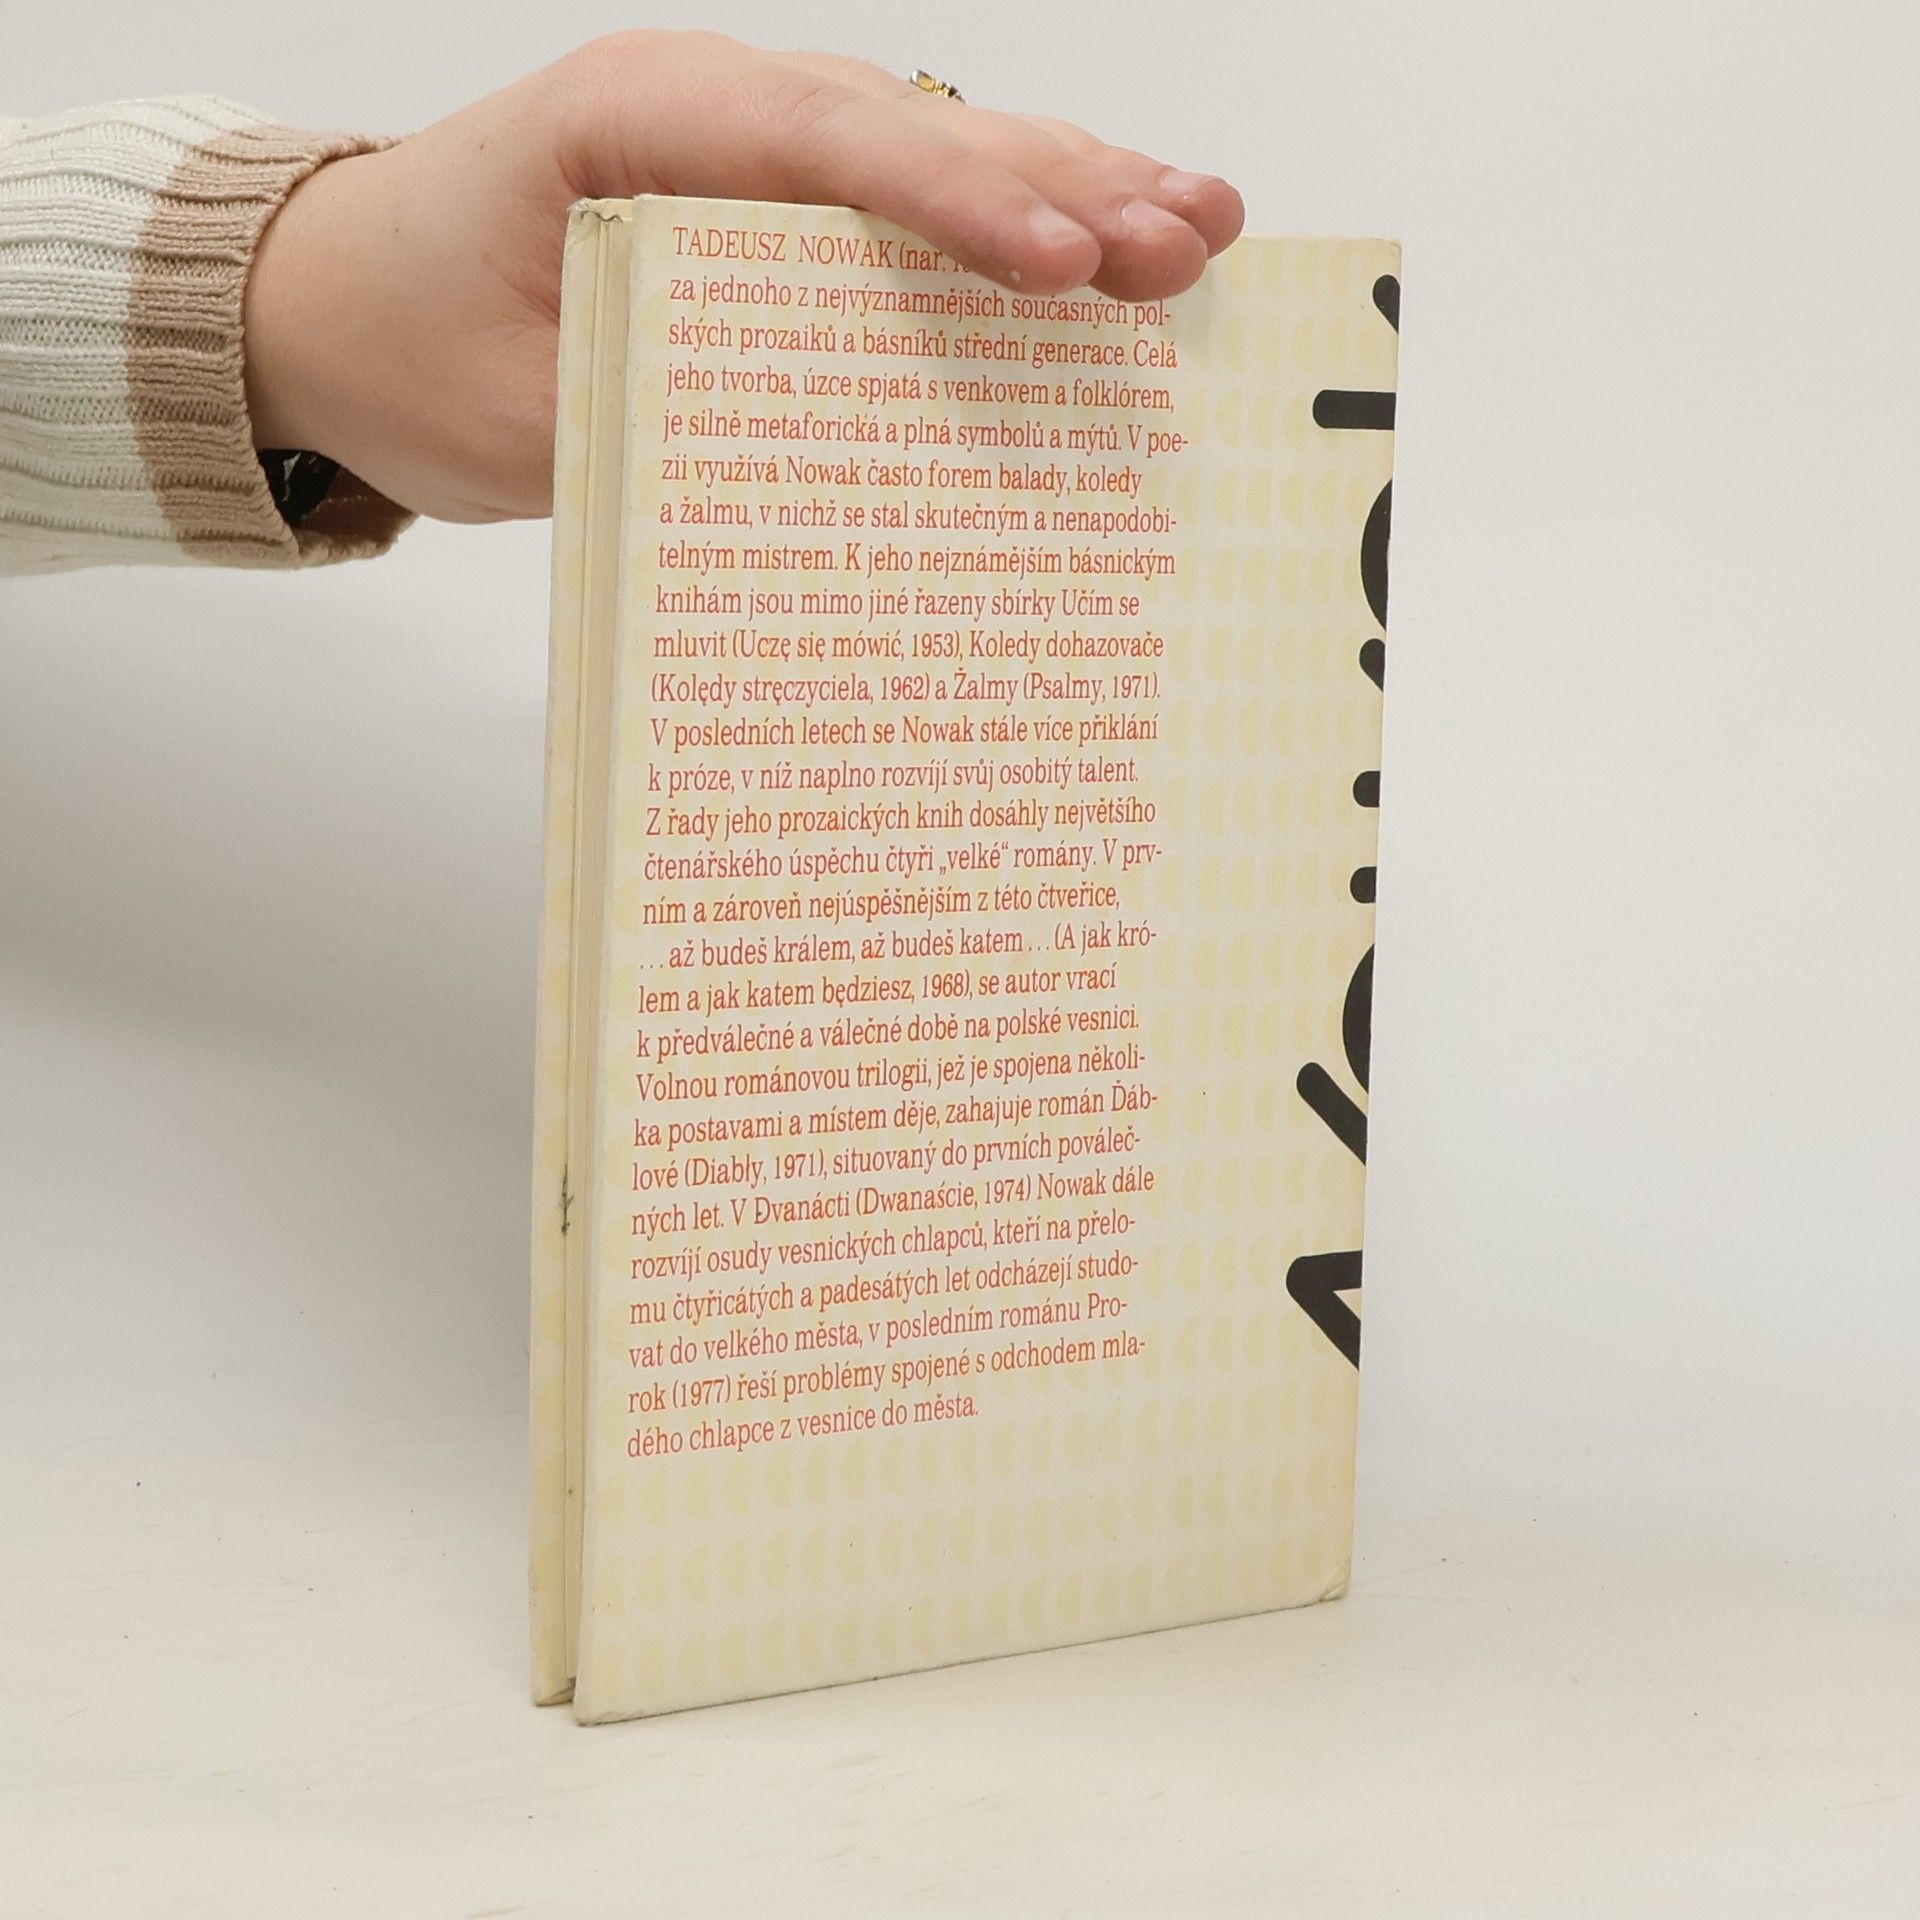 TADEUSZ NOWAK (nar.
za jednoho z nejvýznamnějších současných pol-
ských prozaiků a básníků střední generace. Celá
jeho tvorba, úzce spjatá s venkovem a folklórem,
je silně metaforická a plná symbolů a mýtů. V poe-
zii využívá Nowak často forem balady, koledy
a žalmu, v nichž se stal skutečným a nenapodobi-
telným mistrem. K jeho nejznámějším básnickým
knihám jsou mimo jiné řazeny sbírky Učím se
mluvit (Uczę się mówić, 1953), Koledy dohazovače
(Kolędy stręczyciela, 1962) a Žalmy (Psalmy, 1971).
V posledních letech se Nowak stále více přiklání
k próze, v níž naplno rozvíjí svůj osobitý talent.
Z řady jeho prozaických knih dosáhly největšího
čtenářského úspěchu čtyři „velké“ romány. V prv-
ním a zároveň nejúspěšnějším z této čtveřice,
...až budeš králem, až budeš katem... (A jak kró-
lem a jak katem będziesz, 1968), se autor vrací
k předválečné a válečné době na polské vesnici.
Volnou románovou trilogii, jež je spojena několi-
ka postavami a místem děje, zahajuje román Ďáb-
lové (Diabły, 1971), situovaný do prvních pováleč-
ných let. V Dvanácti (Dwanaście, 1974) Nowak dále
rozvíjí osudy vesnických chlapců, kteří na přelo-
mu čtyřicátých a padesátých let odcházejí studo-
vat do velkého města, v posledním románu Pro-
rok (1977) řeší problémy spojené s odchodem mla-
dého chlapce z vesnice do města.